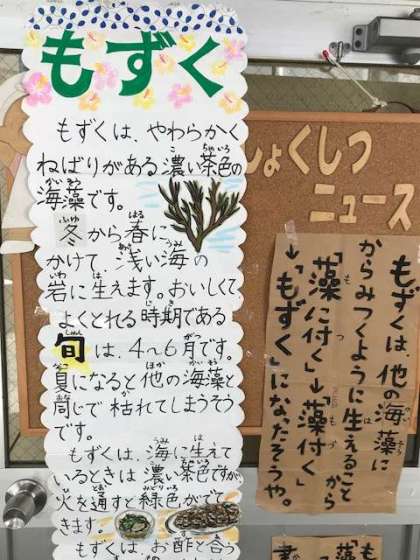 もずく
もずくは、やわらかく
ねばりがある濃い茶色の
海藻です。
冬から春に
かけて浅い海の
岩に生えます。おいしくて、
よくとれる時期である
旬は、4〜6月です。
夏になると他の海藻と
同じで枯れてしまうそう
です。
もずくは、海に生えて
いるときは濃い茶色ですが、
火を通すと緑色がでて
きます。
もずくは、お酢と合う
しょくしつ
ニュース
もずくは他の海藻に
からみつくように生えることから
「藻に付く」→「藻付く」
→「もずく」になったそうや。